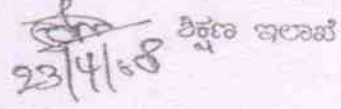 ಶಿಕ್ಷಣ ಇಲಾಖೆ
23/4/08